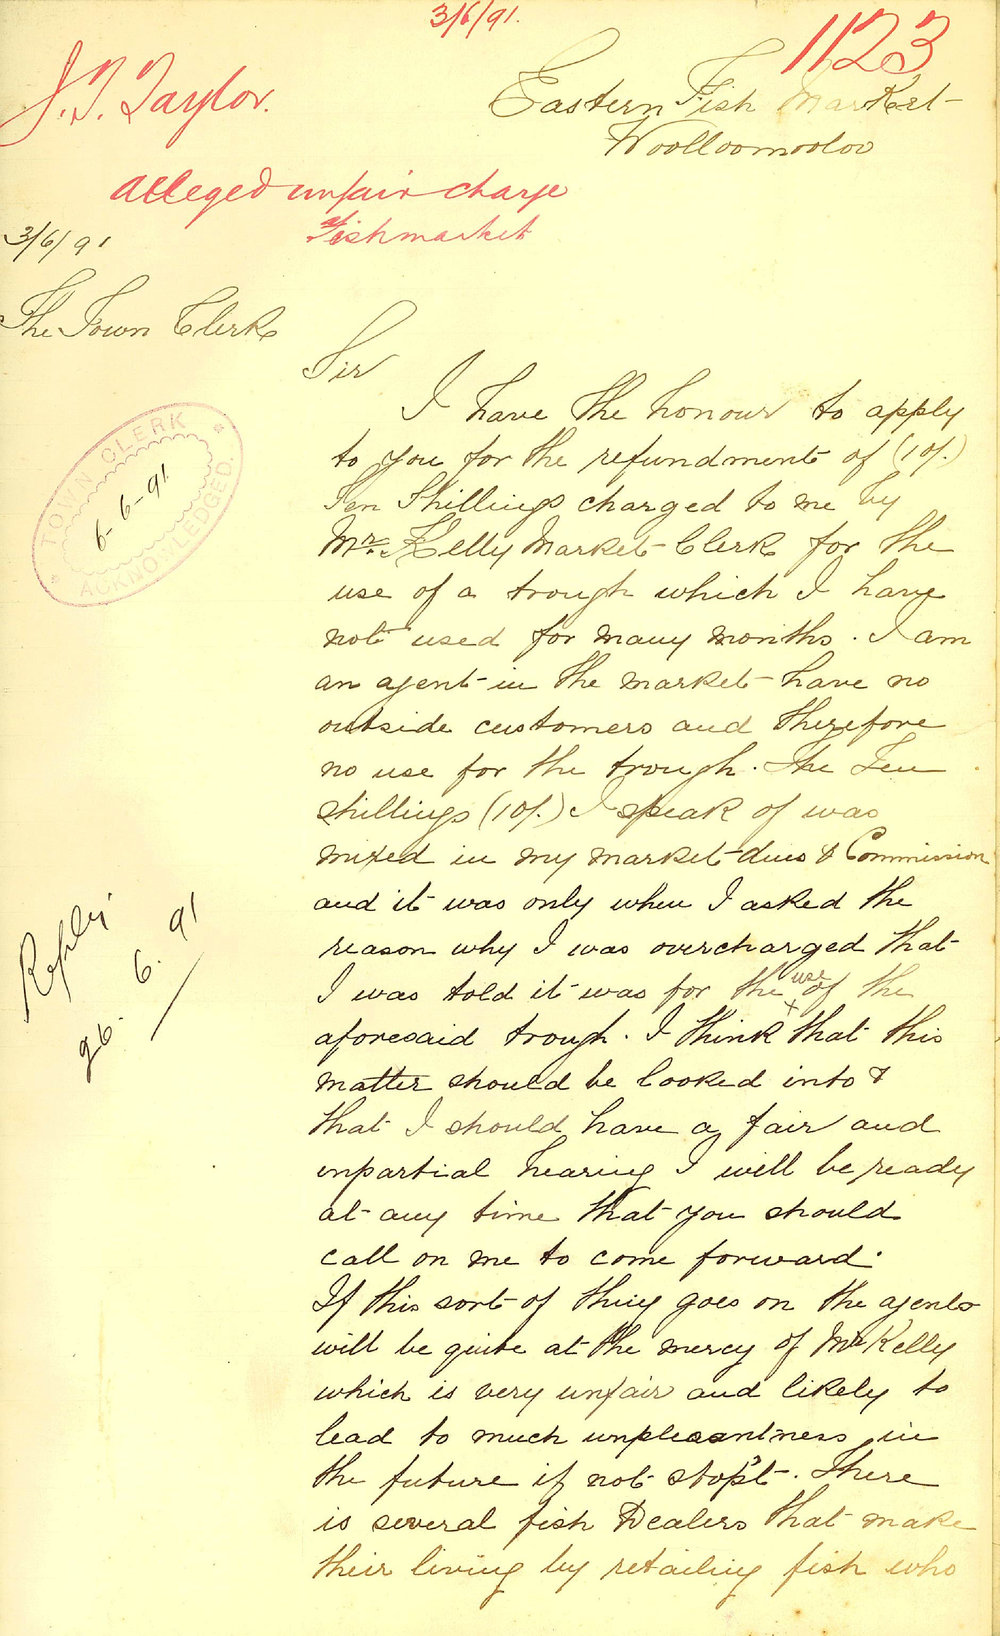 3/6/91.
1123
J. T. Taylor.
Eastern Fish Market
Woolloomooloo
Alleged unfair charge
Fishmarket
3/6/91
The Town Clerk
Sir
I have the honour to apply
to you for the refundment of (10/.)
Ten Shillings charged to me by
Mr. Kelly Market Clerk for the
use of a trough which I have
not used for many months. I am
an agent in the market have no
outside customers and therefore
no use for the trough. The Ten
shillings (10/.) I speak of was
mixed in my market dues & Commission
and it was only when I asked the
reason why I was overcharged that
I was told it was for the use of the
aforesaid trough. I think that this
matter should be looked into &
that I should have a fair and
inpartial hearing I will be ready
at any time that you should
call on me to come forward.
If this sort of thing goes on the agents
will be quite at the mercy of Mr Kelly
which is very unfair and likely to
lead to much unpleasantness in
the future if not stop't. There
is several fish Dealers that make
their living by retailing fish who
TOWN CLERK
6-6-91
ACKNOWLEDGED.
Reply
26. 6. 91